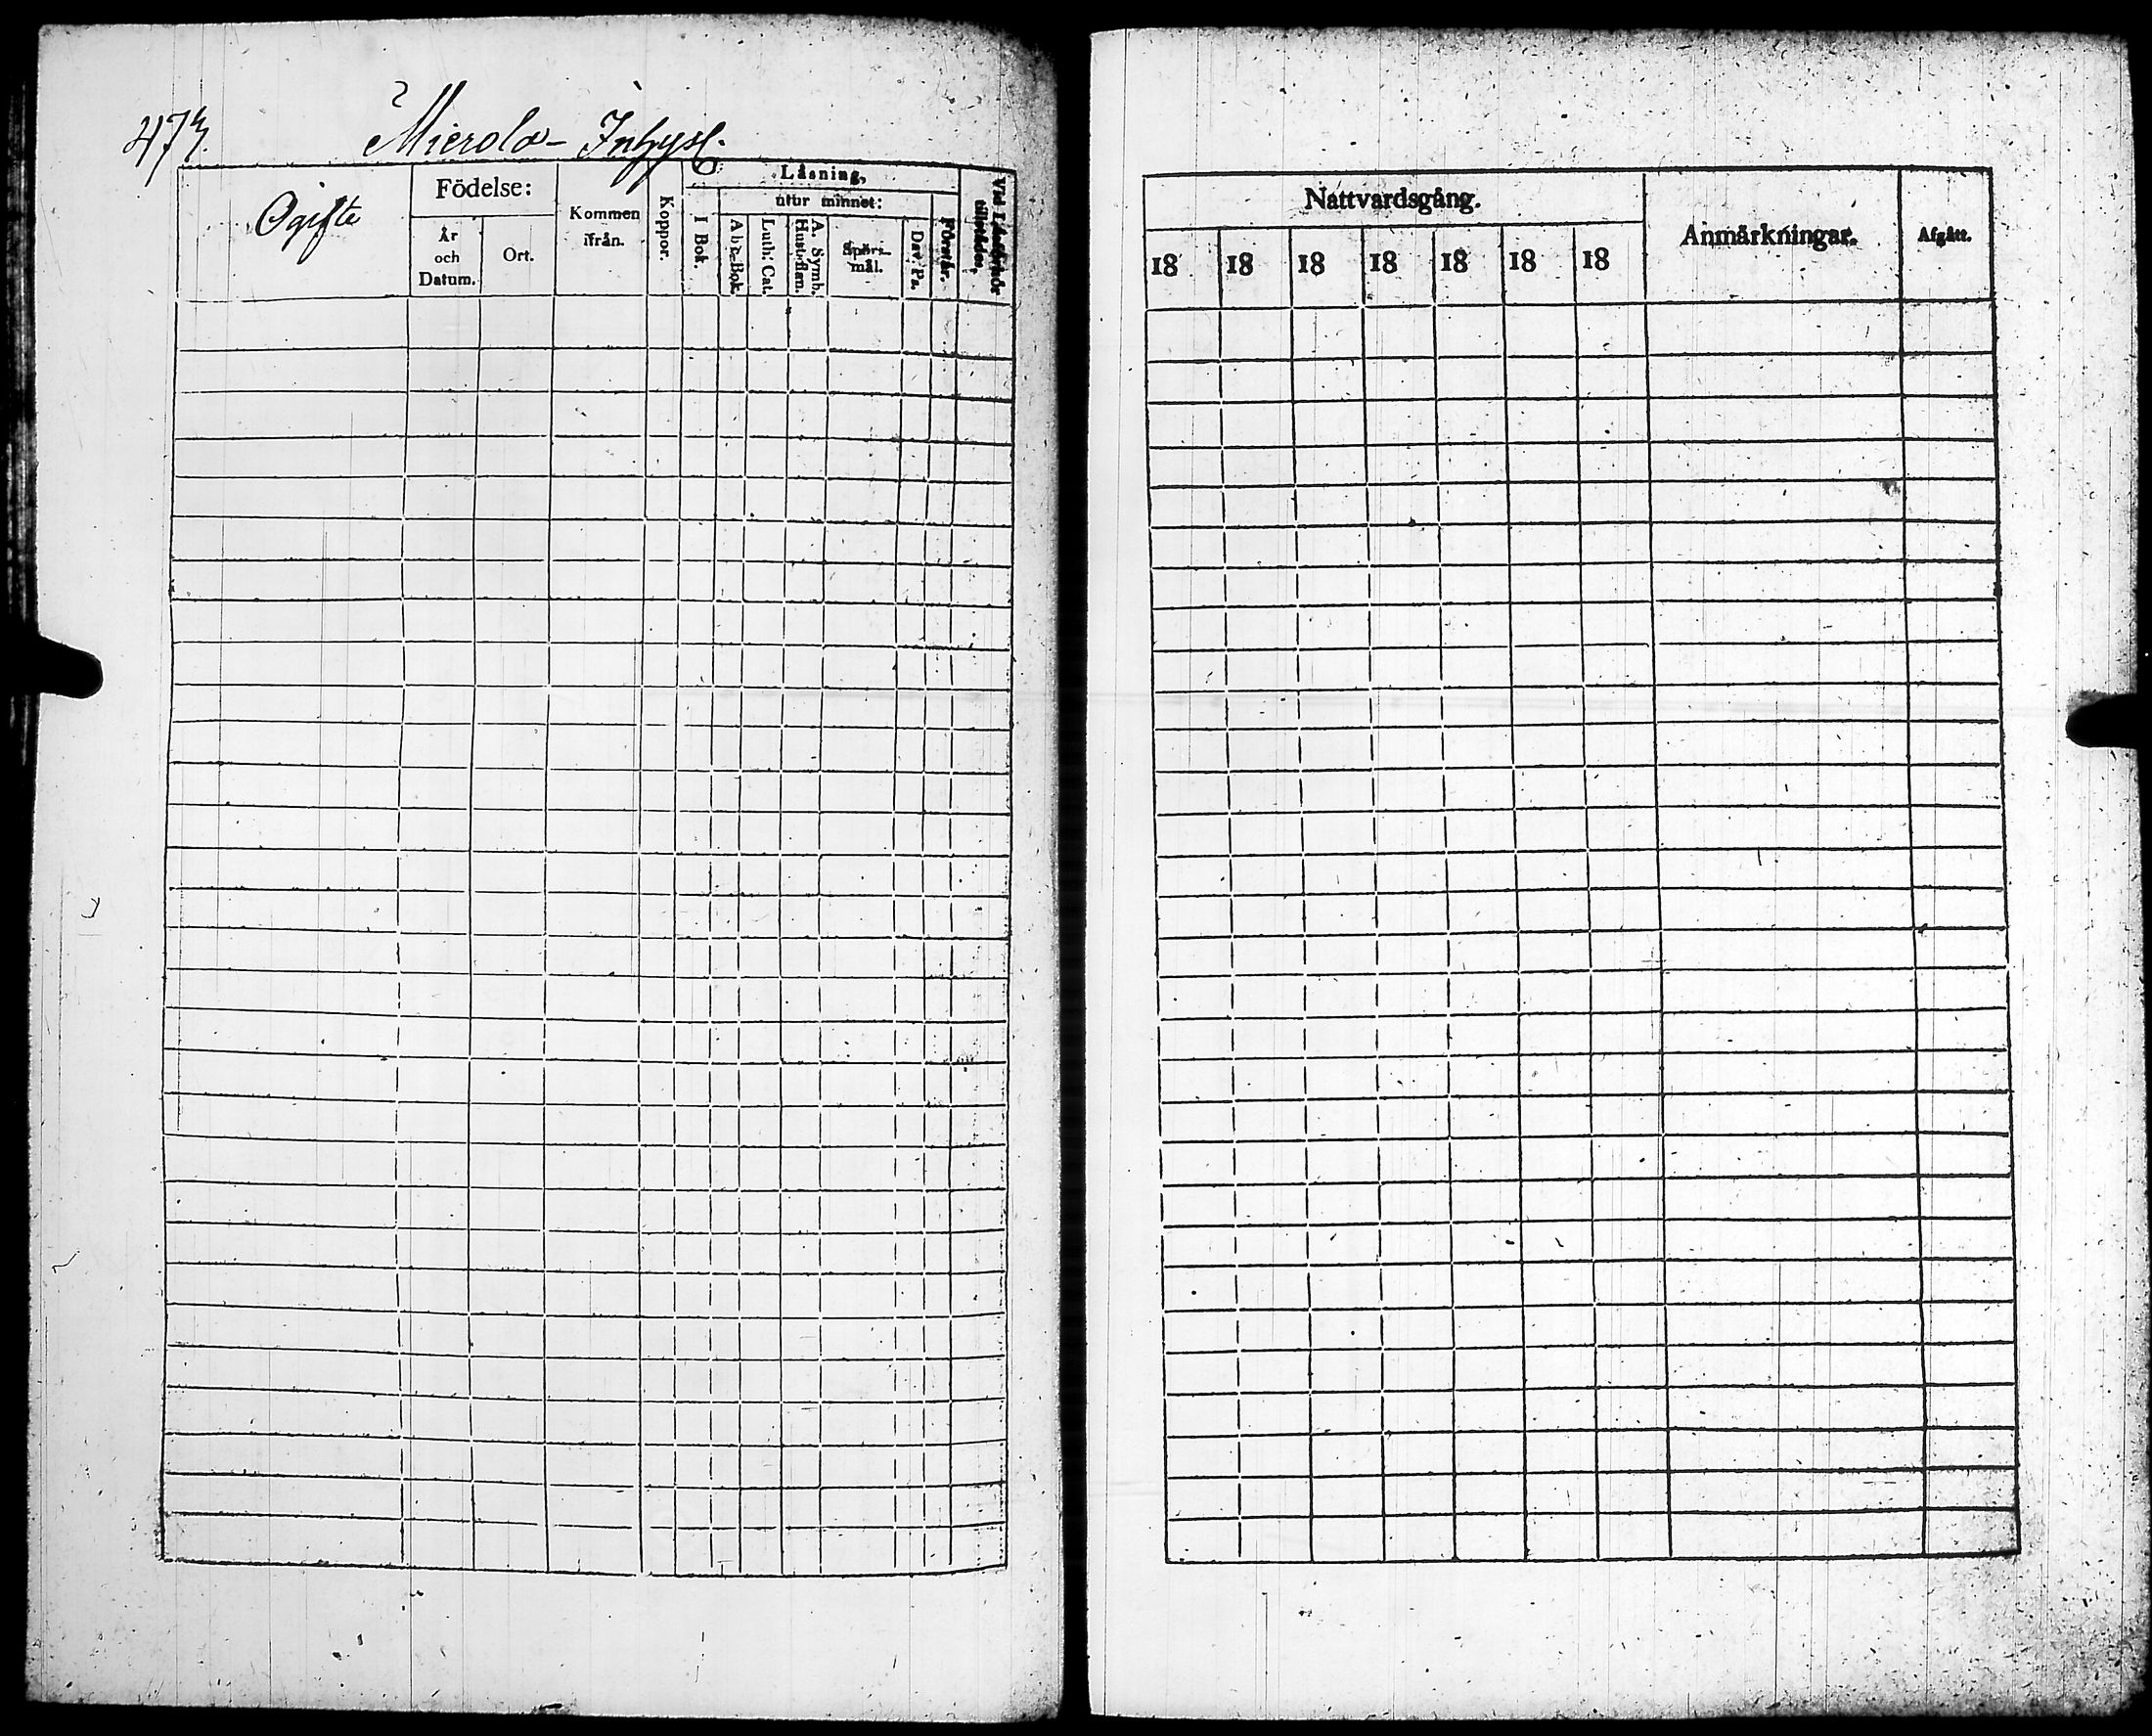 473.
Mierola- Inhys.
Ogifte
Födelse:
År
och
Datum.
Ort.
Kommen
ifrån.
Koppor.
Läsning,
I Bok.
utur minnet:
Abc-Bok.
Luth: Cat.
A. Symb.
Hust-flan.
Spörs-
mål.
Dav: Ps.
Förstår.
Vid Läseförhör
tillstädes,
Nattvardsgång.
18 18 18 18 18 18 18
Anmärkningar.
Afgått.